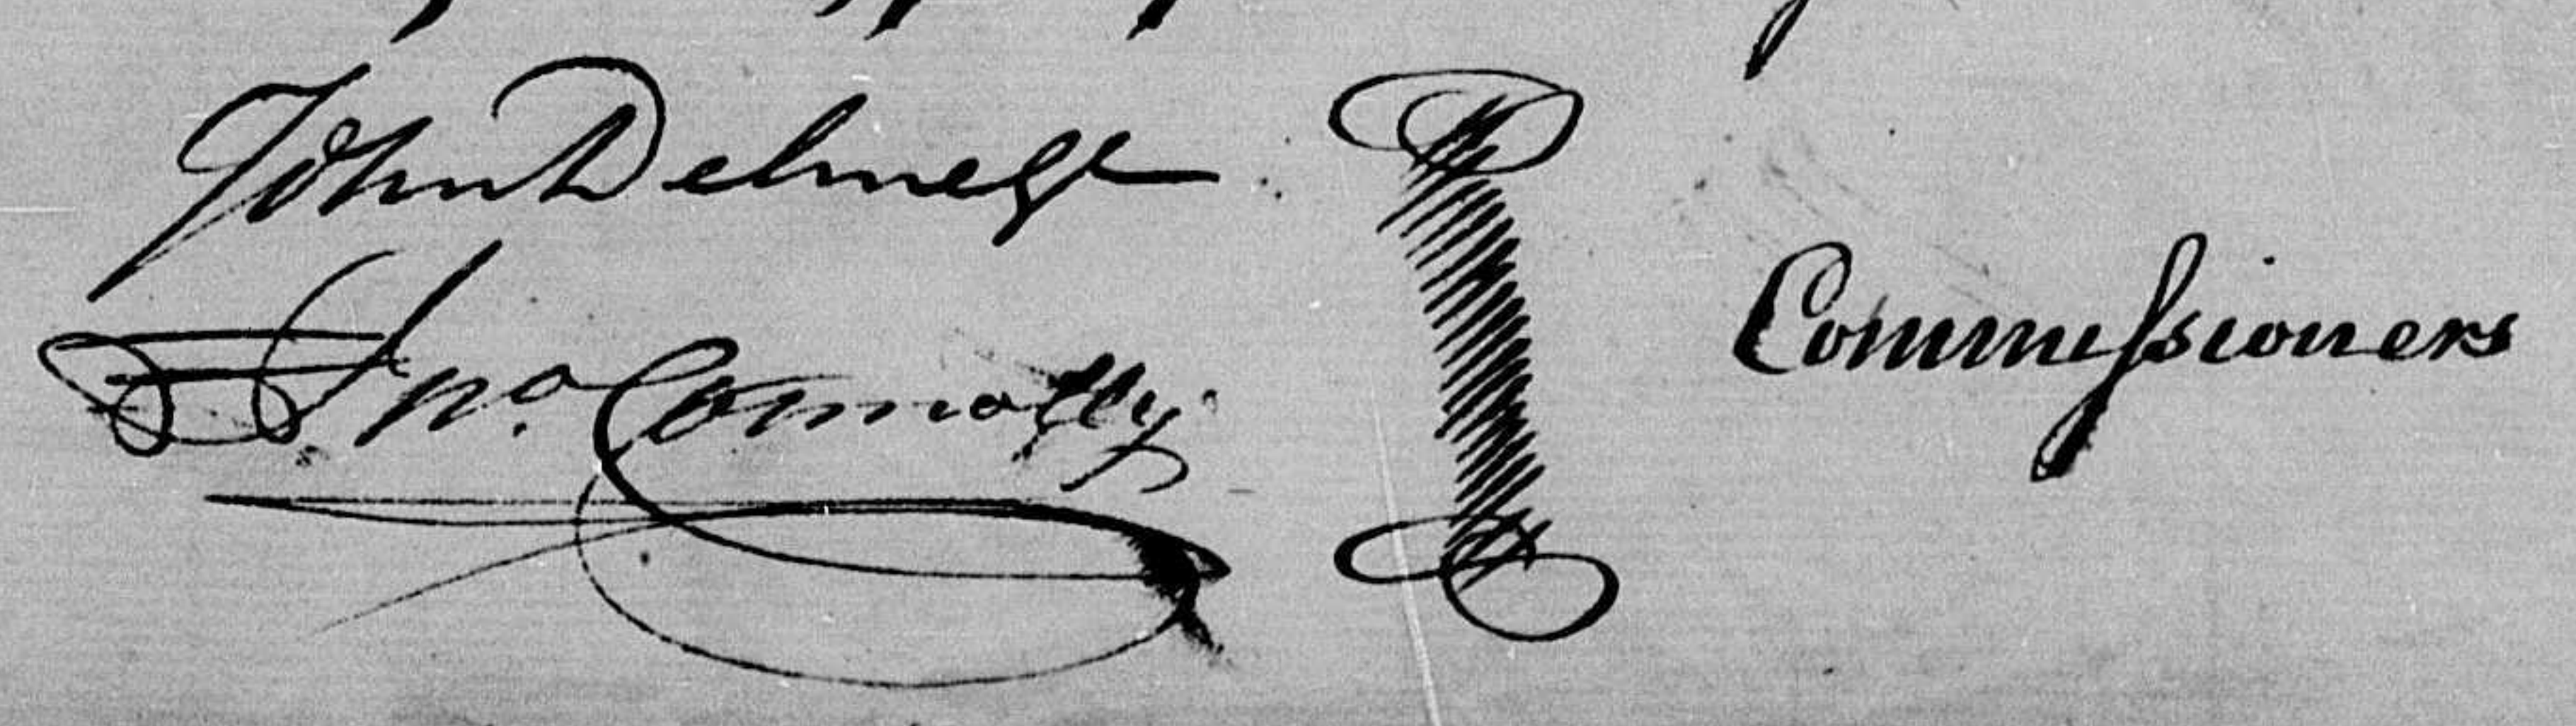 John Delmege
Jno. Connolly
Commissioners